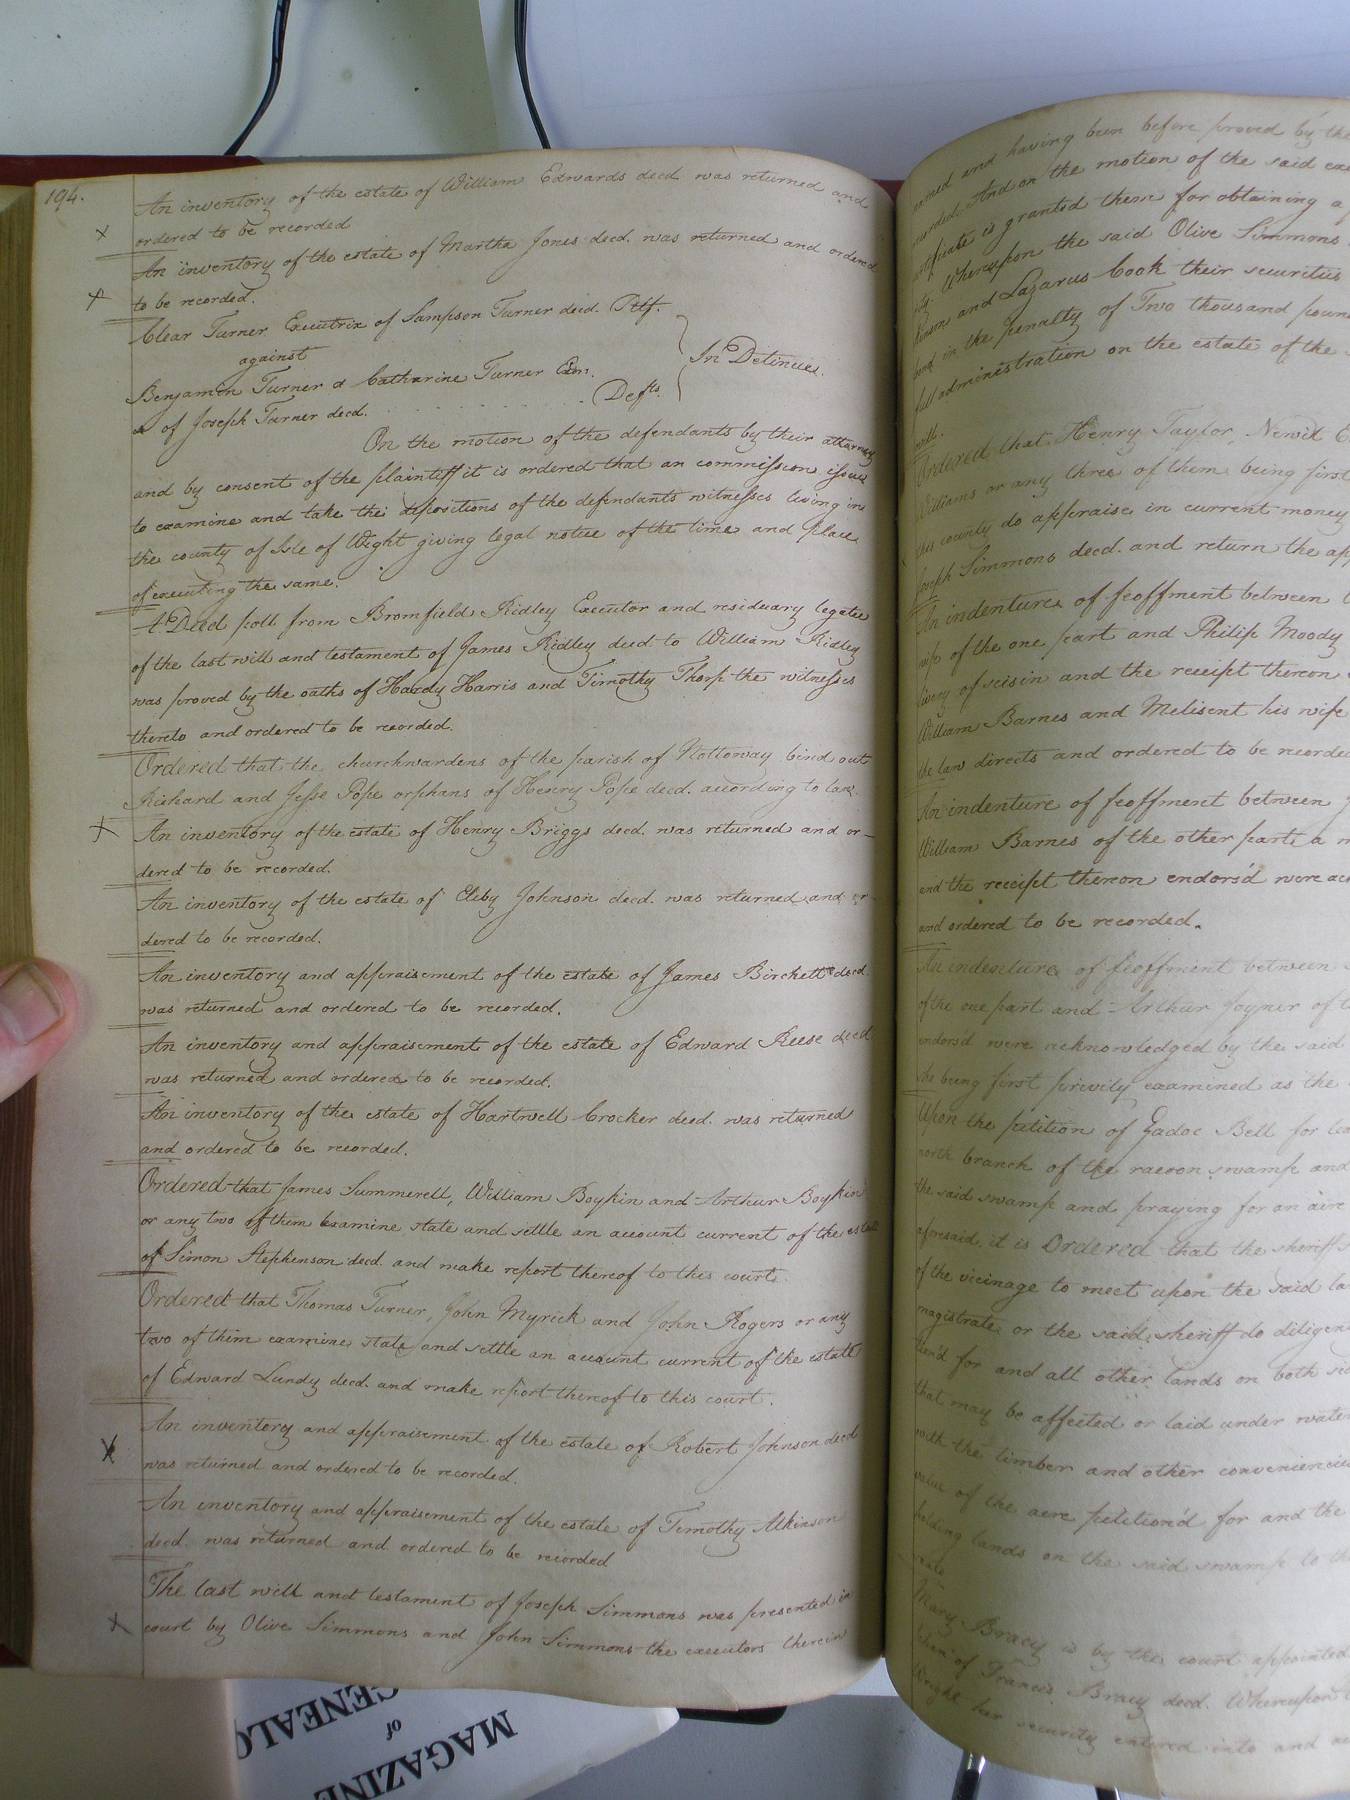 194.
An inventory of the estate of William Edwards decd was returned and
ordered to be recorded
An inventory of the estate of Martha Jones decd. was returned and ordered
to be recorded.
Clear Turner Executrix of Sampson Turner decd. Pltf.
against
In Detinue.
Benjamin Turner & Catharine Turner Exrs.
of Joseph Turner decd. Defts.
On the motion of the defendants by their attorney
and by consent of the plaintiff it is ordered that an commission issue
to examine and take the depositions of the defendants witnesses living in
the county of Isle of Wight giving legal notice of the time and place
of executing the same.
A Deed poll from Bromfield Ridley Executor and residuary legatee
of the last will and testament of James Ridley decd to William Ridley
was proved by the oaths of Hardy Harris and Timothy Thorp the witnesses
thereto and ordered to be recorded.
Ordered that the churchwardens of the parish of Nottoway bind out
Richard and Jesse Pope orphans of Henry Pope decd. according to law.
An inventory of the estate of Henry Briggs decd. was returned and or-
dered to be recorded.
An inventory of the estate of Eleby Johnson decd. was returned and or-
dered to be recorded.
An inventory and appraisement of the estate of James Birchett decd.
was returned and ordered to be recorded.
An inventory and appraisement of the estate of Edward Reese decd
was returned and ordered to be recorded.
An inventory of the estate of Hartwell Crocker decd. was returned
and ordered to be recorded.
Ordered that James Summerell, William Boykin and Arthur Boykin
or any two of them examine state and settle an account current of the estate
of Simon Stephenson decd. and make report thereof to this court.
Ordered that Thomas Turner, John Myrick and John Rogers or any
two of them examine state and settle an account current of the estate
of Edward Lundy decd. and make report thereof to this court.
An inventory and appraisement of the estate of Robert Johnson decd
was returned and ordered to be recorded.
An inventory and appraisement of the estate of Timothy Atkinson
decd. was returned and ordered to be recorded
The last will and testament of Joseph Simmons was presented in
court by Olive Simmons and John Simmons the executors therein
named and having been before proved by the
And on the motion of the said
is granted them for obtaining a
Whereupon the said Olive Simmons
and Lazarus Cook their securities
in the penalty of Two thousand
full administration on the estate of the
will.
Ordered that Henry Taylor, Newit
Williams or any three of them being first
this county do appraise in current money
Joseph Simmons decd. and return the
An indenture of feoffment between
wife of the one part and Philip Moody
livery of seisin and the receipt thereon
William Barnes and Melisent his wife
the law directs and ordered to be recorded
An indenture of feoffment between
William Barnes of the other part a
and the receipt thereon endors'd were
and ordered to be recorded.
An indenture of feoffment between
of the one part and Arthur Joyner of
endors'd were acknowledged by the said
she being first privily examined as the
Upon the petition of Zadoc Bell for
north branch of the racoon swamp and
the said swamp and praying for an
aforesaid, it is Ordered that the sheriff
of the vicinage to meet upon the said
magistrate or the said sheriff do
for and all other lands on both
that may be affected or laid under water
with the timber and other conveniencies
value of the acre petition'd for and the
holding lands on the said swamp to
Mary Bracy is by the court appointed
of Francis Bracy decd. Whereupon
Wright her security entered into and
MAGAZINE
of
GENEALO